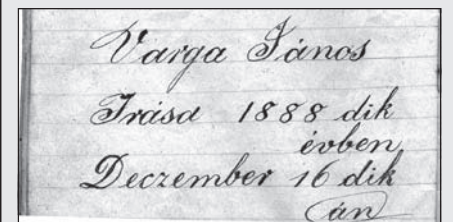 Varga János
Irása 1888 dik
évben
Deczember 16 dik
án